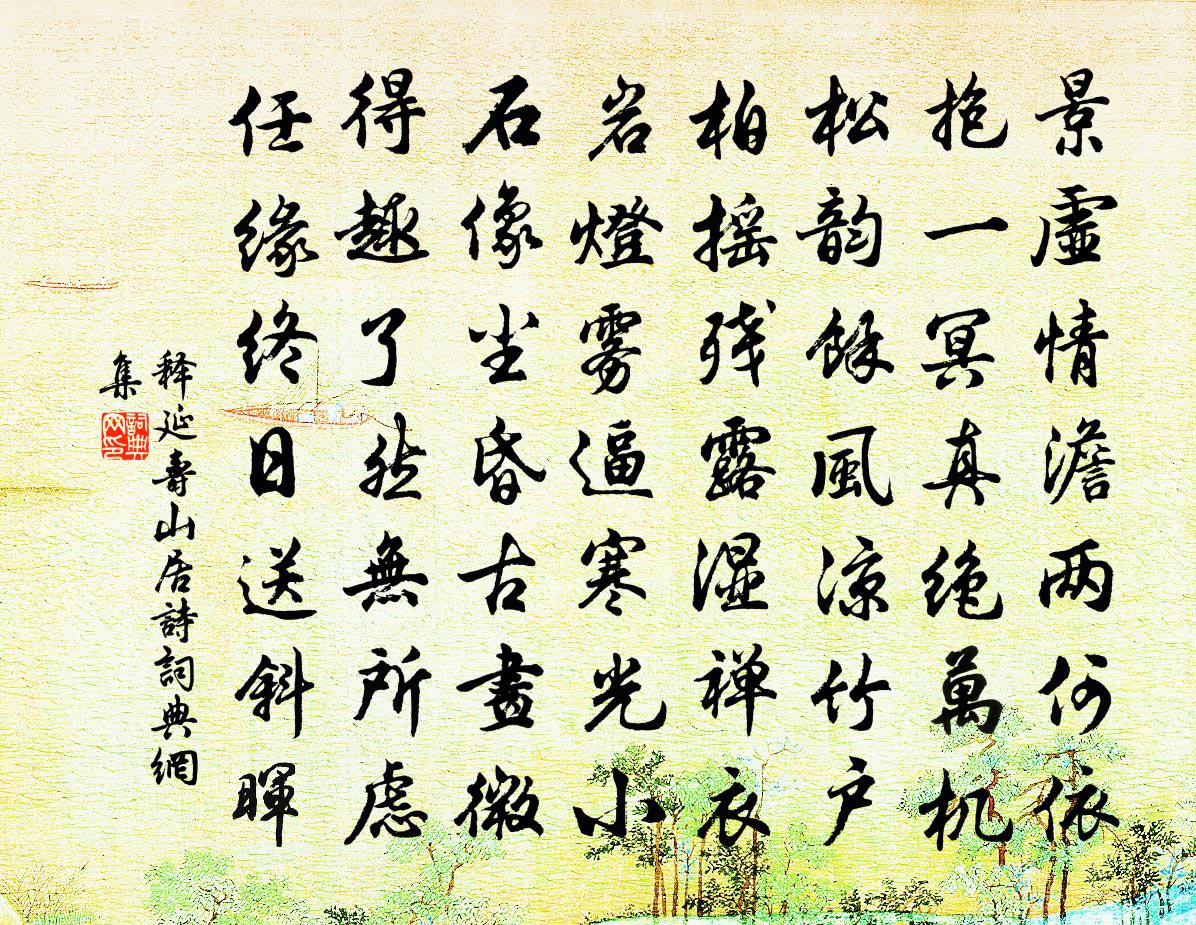 景虛情澹两何依
抱一冥真绝萬机
松韵餘風凉竹户
柏摇残露湿禅衣
岩燈雾逼寒光小
石像尘昏古畫微
得趣了然無所慮
任缘终日送斜暉
释延壽山居詩詞典網
集
詞典
网印